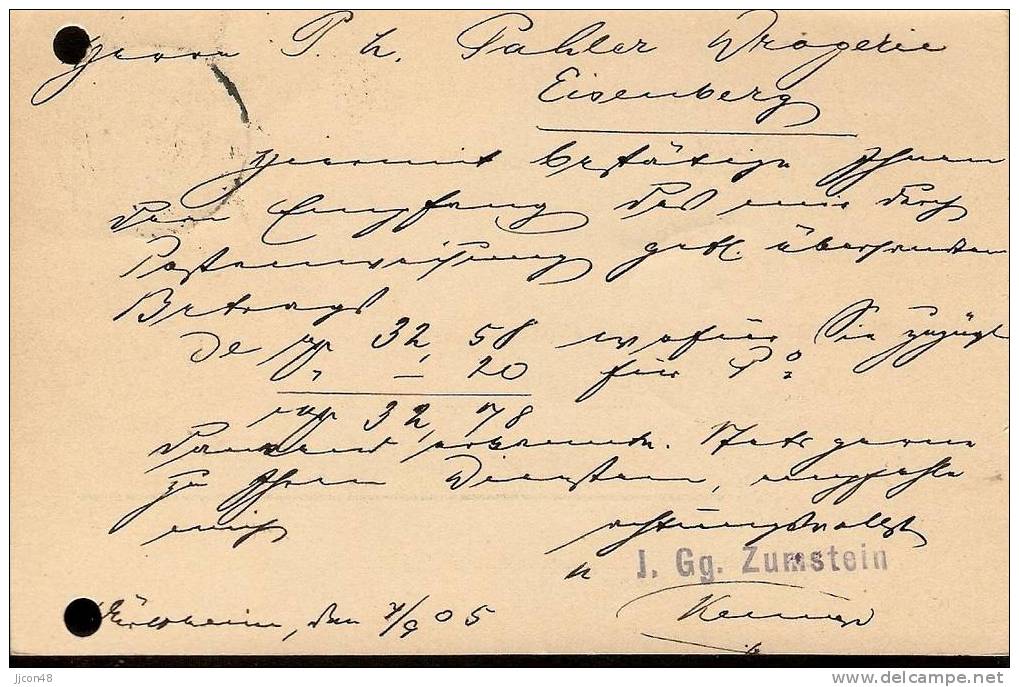 Herrn P. H. Pahler Drogerie
Eisenberg
Hiermit bestätige Ihnen
den Empfang des mir durch
Postanweisung gefl. übersandten
Betrags
de M 32,58 wofür Sie zuzügl
" — 20 für Po
M 32,78
dankend erkannte. Stets gerne
zu Ihren Diensten, empfehle
mich achtungsvollst
J. Gg. Zumstein
den 7/9 05
jjcon48
www.delcampe.net